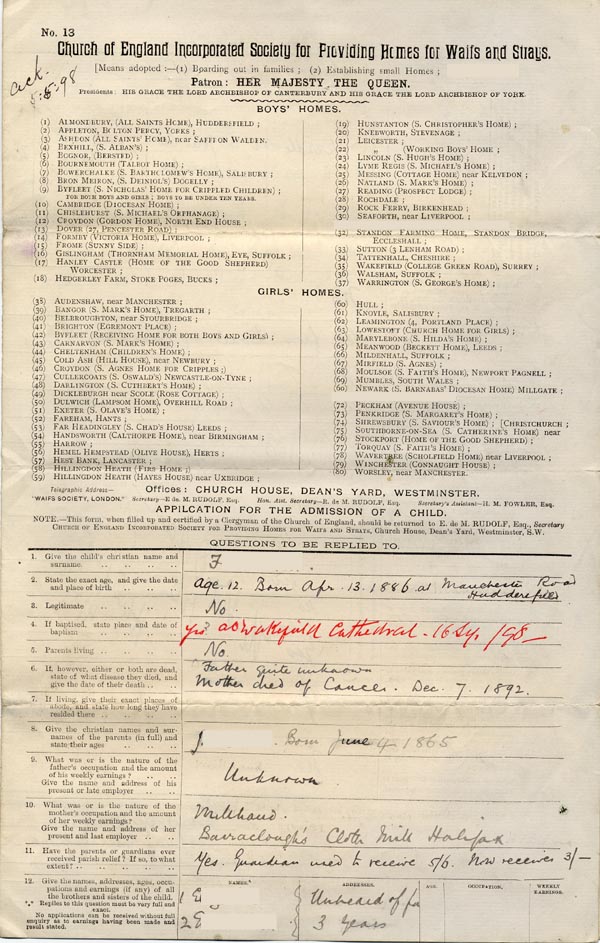 No. 13
Church of England Incorporated Society for Providing Homes for Waifs and Strays.
ack.
5.5.98
[Means adopted :—(1) Boarding out in families ; (2) Establishing small Homes ;
Patron : HER MAJESTY THE QUEEN.
Presidents : HIS GRACE THE LORD ARCHBISHOP OF CANTERBURY AND HIS GRACE THE LORD ARCHBISHOP OF YORK.
BOYS' HOMES.
(1) ALMONDBURY, (ALL SAINTS HOME), HUDDERSFIELD ;
(2) APPLETON, BOLTON PERCY, YORKS ;
(3) ASHDON (ALL SAINTS' HOME), near SAFFRON WALDEN.
(4) BEXHILL, (S. ALBAN'S) ;
(5) BOGNOR, (BERSTED) ;
(6) BOURNEMOUTH (TALBOT HOME) ;
(7) BOWERCHALKE (S. BARTHOLOMEW'S HOME), SALISBURY ;
(8) BRON MEIRON, (S. DEINIOL'S) DOLGELLY ;
(9) BYFLEET (S. NICHOLAS' HOME FOR CRIPPLED CHILDREN) ;
FOR BOTH BOYS AND GIRLS ; BOYS TO BE UNDER TEN YEARS.
(10) CAMBRIDGE (DIOCESAN HOME) ;
(11) CHISLEHURST (S. MICHAEL'S ORPHANAGE) ;
(12) CROYDON (GORDON HOME), NORTH END HOUSE ;
(13) DOVER (27, PENCESTER ROAD) ;
(14) FORMBY (VICTORIA HOME), LIVERPOOL ;
(15) FROME (SUNNY SIDE) ;
(16) GISLINGHAM (THORNHAM MEMORIAL HOME), EYE, SUFFOLK ;
(17) HANLEY CASTLE (HOME OF THE GOOD SHEPHERD)
WORCESTER ;
(18) HEDGERLEY FARM, STOKE POGES, BUCKS ;
(19) HUNSTANTON (S. CHRISTOPHER'S HOME) ;
(20) KNEBWORTH, STEVENAGE ;
(21) LEICESTER ;
(22) " (WORKING BOYS' HOME
(23) LINCOLN (S. HUGH'S HOME) ;
(24) LYME REGIS (S. MICHAEL'S HOME) ;
(25) MESSING (COTTAGE HOME) near KELVEDON ;
(26) NATLAND (S. MARK'S HOME) ;
(27) READING (PROSPECT LODGE) ;
(28) ROCHDALE ;
(29) ROCK FERRY, BIRKENHEAD ;
(30) SEAFORTH, near LIVERPOOL ;
(32) STANDON FARMING HOME, STANDON BRIDGE,
ECCLESHALL ;
(33) SUTTON (3 LENHAM ROAD) ;
(34) TATTENHALL, CHESHIRE ;
(35) WAKEFIELD (COLLEGE GREEN ROAD), SURREY ;
(36) WALSHAM, SUFFOLK ;
(37) WARRINGTON (S. GEORGE'S HOME) ;
GIRLS' HOMES.
(38) AUDENSHAW, near MANCHESTER ;
(39) BANGOR (S. MARK'S HOME), TREGARTH ;
(40) BELBROUGHTON, near STOURBRIDGE ;
(41) BRIGHTON (EGREMONT PLACE) ;
(42) BYFLEET (RECEIVING HOME FOR BOTH BOYS AND GIRLS) ;
(43) CARNARVON (S. MARK'S HOME) ;
(44) CHELTENHAM (CHILDREN'S HOME) ;
(45) COLD ASH (HILL HOUSE), near NEWBURY ;
(46) CROYDON (S. AGNES HOME FOR CRIPPLES ;)
(47) CULLERCOATS (S. OSWALD'S) NEWCASTLE-ON-TYNE ;
(48) DARLINGTON (S. CUTHBERT'S HOME) ;
(49) DICKLEBURGH near SCOLE (ROSE COTTAGE) ;
(50) DULWICH (LAMPSOM HOME), OVERHILL ROAD ;
(51) EXETER (S. OLAVE'S HOME) ;
(52) FAREHAM, HANTS ;
(53) FAR HEADINGLEY (S. CHAD'S HOUSE) LEEDS ;
(54) HANDSWORTH (CALTHORPE HOME), near BIRMINGHAM ;
(55) HARROW ;
(56) HEMEL HEMPSTEAD (OLIVE HOUSE), HERTS ;
(57) HEST BANK, LANCASTER ;
(58) HILLINGDON HEATH (FIRS HOME ;)
(59) HILLINGDON HEATH (HAYES HOUSE) near UXBRIDGE ;
(60) HULL ;
(61) KNOYLE, SALISBURY ;
(62) LEAMINGTON (4, PORTLAND PLACE) ;
(63) LOWESTOFT (CHURCH HOME FOR GIRLS) ;
(64) MARYLEBONE (S. HILDA'S HOME) ;
(65) MEANWOOD (BECKETT HOME), LEEDS ;
(66) MILDENHALL, SUFFOLK ;
(67) MIRFIELD (S. AGNES) ;
(68) MOULSOE (S. FAITH'S HOME), NEWPORT PAGNELL ;
(69) MUMBLES, SOUTH WALES ;
(60) NEWARK (S. BARNABAS' DIOCESAN HOME) MILLGATE ;
(72) PECKHAM (AVENUE HOUSE) ;
(73) PENKRIDGE (S. MARGARET'S HOME) ;
(74) SHREWSBURY (S. SAVIOUR'S HOME) ; [CHRISTCHURCH ;
(75) SOUTHBORNE-ON-SEA (S. CATHERINE'S HOME) near
(76) STOCKPORT (HOME OF THE GOOD SHEPHERD) ;
(77) TORQUAY (S. FAITH'S HOME) ;
(78) WAVERTREE (SCHOLFIELD HOME) near LIVERPOOL ;
(79) WINCHESTER (CONNAUGHT HOUSE) ;
(80) WORSLEY, near MANCHESTER.
Telegraphic Address—
"WAIFS SOCIETY, LONDON."
Offices : CHURCH HOUSE, DEAN'S YARD, WESTMINSTER.
Secretary—E. de M. RUDOLF, Esq. Hon. Asst. Secretary—R. de M. RUDOLF, Esq. Secretary's Assistant—H. M. FOWLER, Esq.
APPLICATION FOR THE ADMISSION OF A CHILD.
NOTE.—This form, when filled up and certified by a Clergyman of the Church of England, should be returned to E. de M. RUDOLF, Esq., Secretary
CHURCH OF ENGLAND INCORPORATED SOCIETY FOR PROVIDING HOMES FOR WAIFS AND STRAYS, Church House, Dean's Yard, Westminster, S.W.
QUESTIONS TO BE REPLIED TO.
1. Give the child's christian name and
surname. .. .. ..
F
2. State the exact age, and give the date
and place of birth .. ..
age. 12. Born Apr. 13. 1886 at Manchester Road
Huddersfield
3. Legitimate .. .. ..
No.
4. If baptised, state place and date of
baptism .. .. ..
?
Yes. at Wakefield Cathedral - 16 Sep. /98-
5. Parents living .. .. ..
No.
6. If, however, either or both are dead,
state of what disease they died, and
give the date of their death .. ..
Father quite unknown
Mother died of Cancer. Dec. 7. 1892.
7. If living, give their exact places of
abode, and state how long they have
resided there .. .. ..
8. Give the christian names and sur-
names of the parents (in full) and
state their ages .. .. ..
J. Born June 4 1865
9. What was or is the nature of the
father's occupation and the amount
of his weekly earnings ? .. ..
Give the name and address of his
present or late employer .. ..
Unknown
10. What was or is the nature of the
mother's occupation and the amount
of her weekly earnings?
Give the name and address of her
present and last employer .. ..
Millhand.
Barraclough's Cloth Mill Halifax
11. Have the parents or guardians ever
received parish relief? If so, to what
extent? .. .. .. ..
Yes. Guardian used to receive 5/6. Now receives 3/-
12. Give the names, addresses, ages, occu-
pations and earnings (if any) of all
the brothers and sisters of the child.
*.* Replies to this question must be very full and
exact.
No applications can be received without full
enquiry as to earnings having been made and
result stated.
NAMES. ADDRESSES. AGE. OCCUPATION. WEEKLY
EARNINGS.
1 E } Unheard of for
2 E } 3 Years